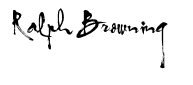 Ralph Browning